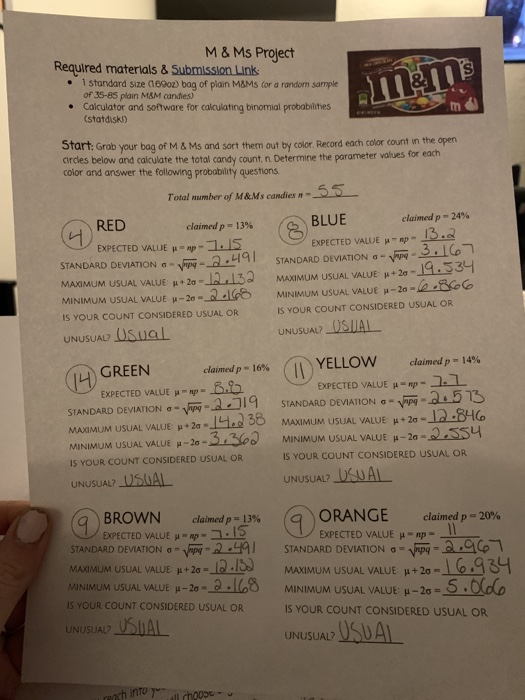 M & Ms Project
Required materials & Submission Link:
• 1 standard size (1.69oz) bag of plain M&Ms (or a random sample
of 35-85 plain M&M candies)
• Calculator and software for calculating binomial probabilities
(statdisk)
m&m's
m
Start: Grab your bag of M & Ms and sort them out by color. Record each color count in the open
circles below and calculate the total candy count, n. Determine the parameter values for each
color and answer the following probability questions.
Total number of M&Ms candies n = 55
4 RED claimed p = 13%
EXPECTED VALUE μ = np = 7.15
STANDARD DEVIATION σ = √npq = 2.491
MAXIMUM USUAL VALUE μ + 2σ = 12.132
MINIMUM USUAL VALUE μ - 2σ = 2.168
IS YOUR COUNT CONSIDERED USUAL OR
UNUSUAL? Usual
8 BLUE claimed p = 24%
EXPECTED VALUE μ = np = 13.2
STANDARD DEVIATION σ = √npq = 3.167
MAXIMUM USUAL VALUE μ + 2σ = 19.534
MINIMUM USUAL VALUE μ - 2σ = 6.866
IS YOUR COUNT CONSIDERED USUAL OR
UNUSUAL? USUAL
14 GREEN claimed p = 16%
EXPECTED VALUE μ = np =
STANDARD DEVIATION σ = √npq = 2.719
MAXIMUM USUAL VALUE μ + 2σ = 14.238
MINIMUM USUAL VALUE μ - 2σ = 3.362
IS YOUR COUNT CONSIDERED USUAL OR
UNUSUAL? USUAL
11 YELLOW claimed p = 14%
EXPECTED VALUE μ = np = 7.7
STANDARD DEVIATION σ = √npq = 2.573
MAXIMUM USUAL VALUE μ + 2σ = 12.846
MINIMUM USUAL VALUE μ - 2σ = 2.554
IS YOUR COUNT CONSIDERED USUAL OR
UNUSUAL? USUAL
9 BROWN claimed p = 13%
EXPECTED VALUE μ = np = 7.15
STANDARD DEVIATION σ = √npq = 2.491
MAXIMUM USUAL VALUE μ + 2σ = 12.132
MINIMUM USUAL VALUE μ - 2σ = 2.168
IS YOUR COUNT CONSIDERED USUAL OR
UNUSUAL? USUAL
9 ORANGE claimed p = 20%
EXPECTED VALUE μ = np = 11
STANDARD DEVIATION σ = √npq = 2.967
MAXIMUM USUAL VALUE μ + 2σ = 16.934
MINIMUM USUAL VALUE μ - 2σ = 5.066
IS YOUR COUNT CONSIDERED USUAL OR
UNUSUAL? USUAL